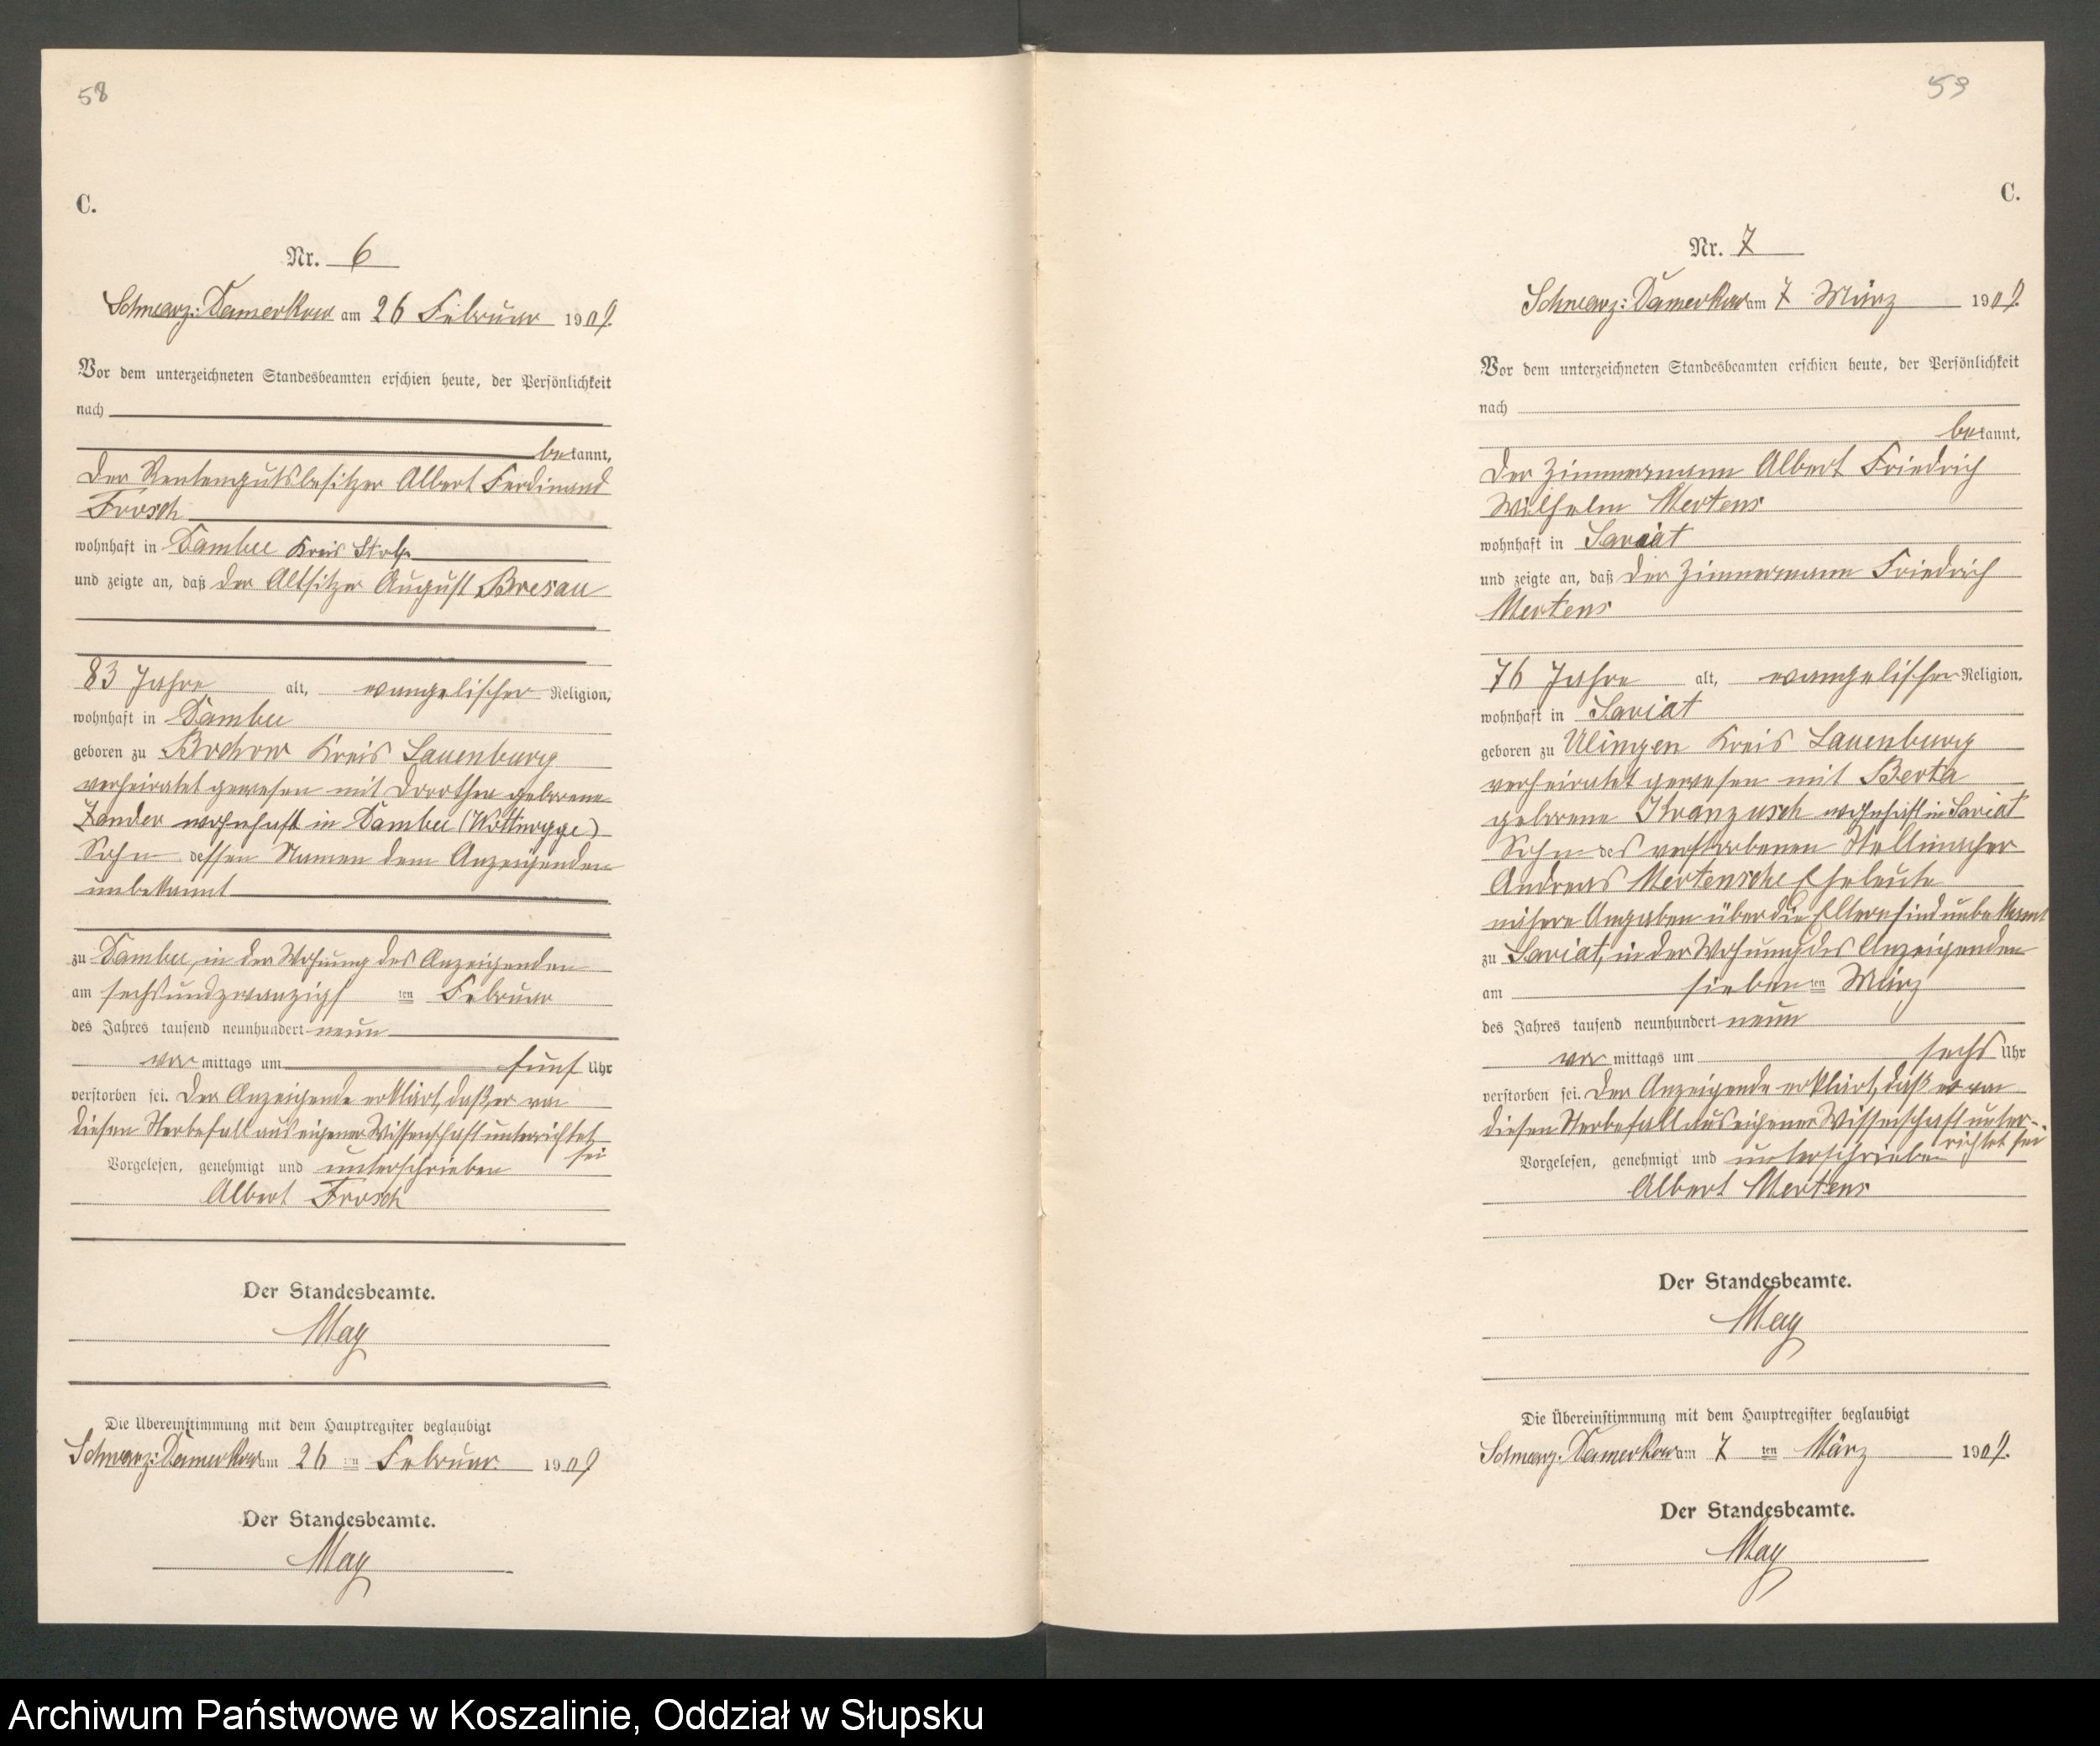 58
C.
Nr. 6
Schwarz: Damerkow am 26 Februar 1909.
Vor dem unterzeichneten Standesbeamten erschien heute, der Persönlichkeit
nach
bekannt,
der Rentengutsbesitzer Albert Ferdinand
Frosch
wohnhaft in Dambee Kreis Stolp
und zeigte an, daß der Altsitzer August Bresau
83 Jahre alt, evangelischer Religion,
wohnhaft in Dambee
geboren zu Bochow Kreis Lauenburg
verheiratet gewesen mit Dorothea geborene
Zander wohnhaft in Dambee
Sohn dessen Namen dem Anzeigenden
unbekannt
zu Dambee, in der Wohnung des Anzeigenden
am sechsundzwanzigsten Februar
des Jahres tausend neunhundert neun
vor mittags um fünf Uhr
verstorben sei. Der Anzeigende erklärt, daß er von
diesen Sterbefall aus eigener Wissenschaft unterrichtet
sei
Vorgelesen, genehmigt und unterschrieben
Albert Frosch
Der Standesbeamte.
May
Die Übereinstimmung mit dem Hauptregister beglaubigt
Schwarz: Damerkow am 26 ten Februar 1909
Der Standesbeamte.
May
59
C.
Nr. 7
Schwarz: Damerkow am 7 März 1909.
Vor dem unterzeichneten Standesbeamten erschien heute, der Persönlichkeit
nach
bekannt,
der Zimmermann Albert Friedrich
Wilhelm Mertens
wohnhaft in Saviat
und zeigte an, daß der Zimmermann Friedrich
Mertens
76 Jahre alt, evangelischer Religion,
wohnhaft in Saviat
geboren zu Ulingen Kreis Lauenburg
verheiratet gewesen mit Berta
geborene Kranzusch wohnhaft in Saviat
Sohn des verstorbenen Stellmacher
Andreas Mertensche Eheleute
nähere Angaben über die Eltern sind unbekannt
zu Saviat, in der Wohnung des Anzeigenden
am sieben ten März
des Jahres tausend neunhundert neun
vor mittags um sechs Uhr
verstorben sei. Der Anzeigende erklärt, daß er von
diesen Sterbefall aus eigener Wissenschaft unter-
richtet sei
Vorgelesen, genehmigt und unterschrieben
Albert Mertens
Der Standesbeamte.
May
Die Übereinstimmung mit dem Hauptregister beglaubigt
Schwarz: Damerkow am 7 ten März 1909.
Der Standesbeamte.
May
Archiwum Państwowe w Koszalinie, Oddział w Słupsku